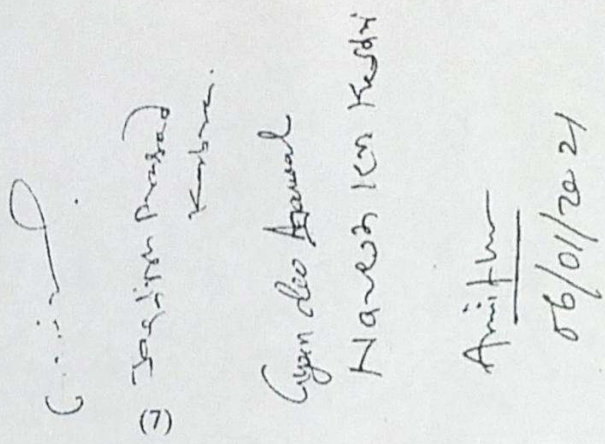 (7)
Jagdish Prasad
Gyan deo Agarwal
Naresh Kr Kedia
Amit Kr
06/01/2021